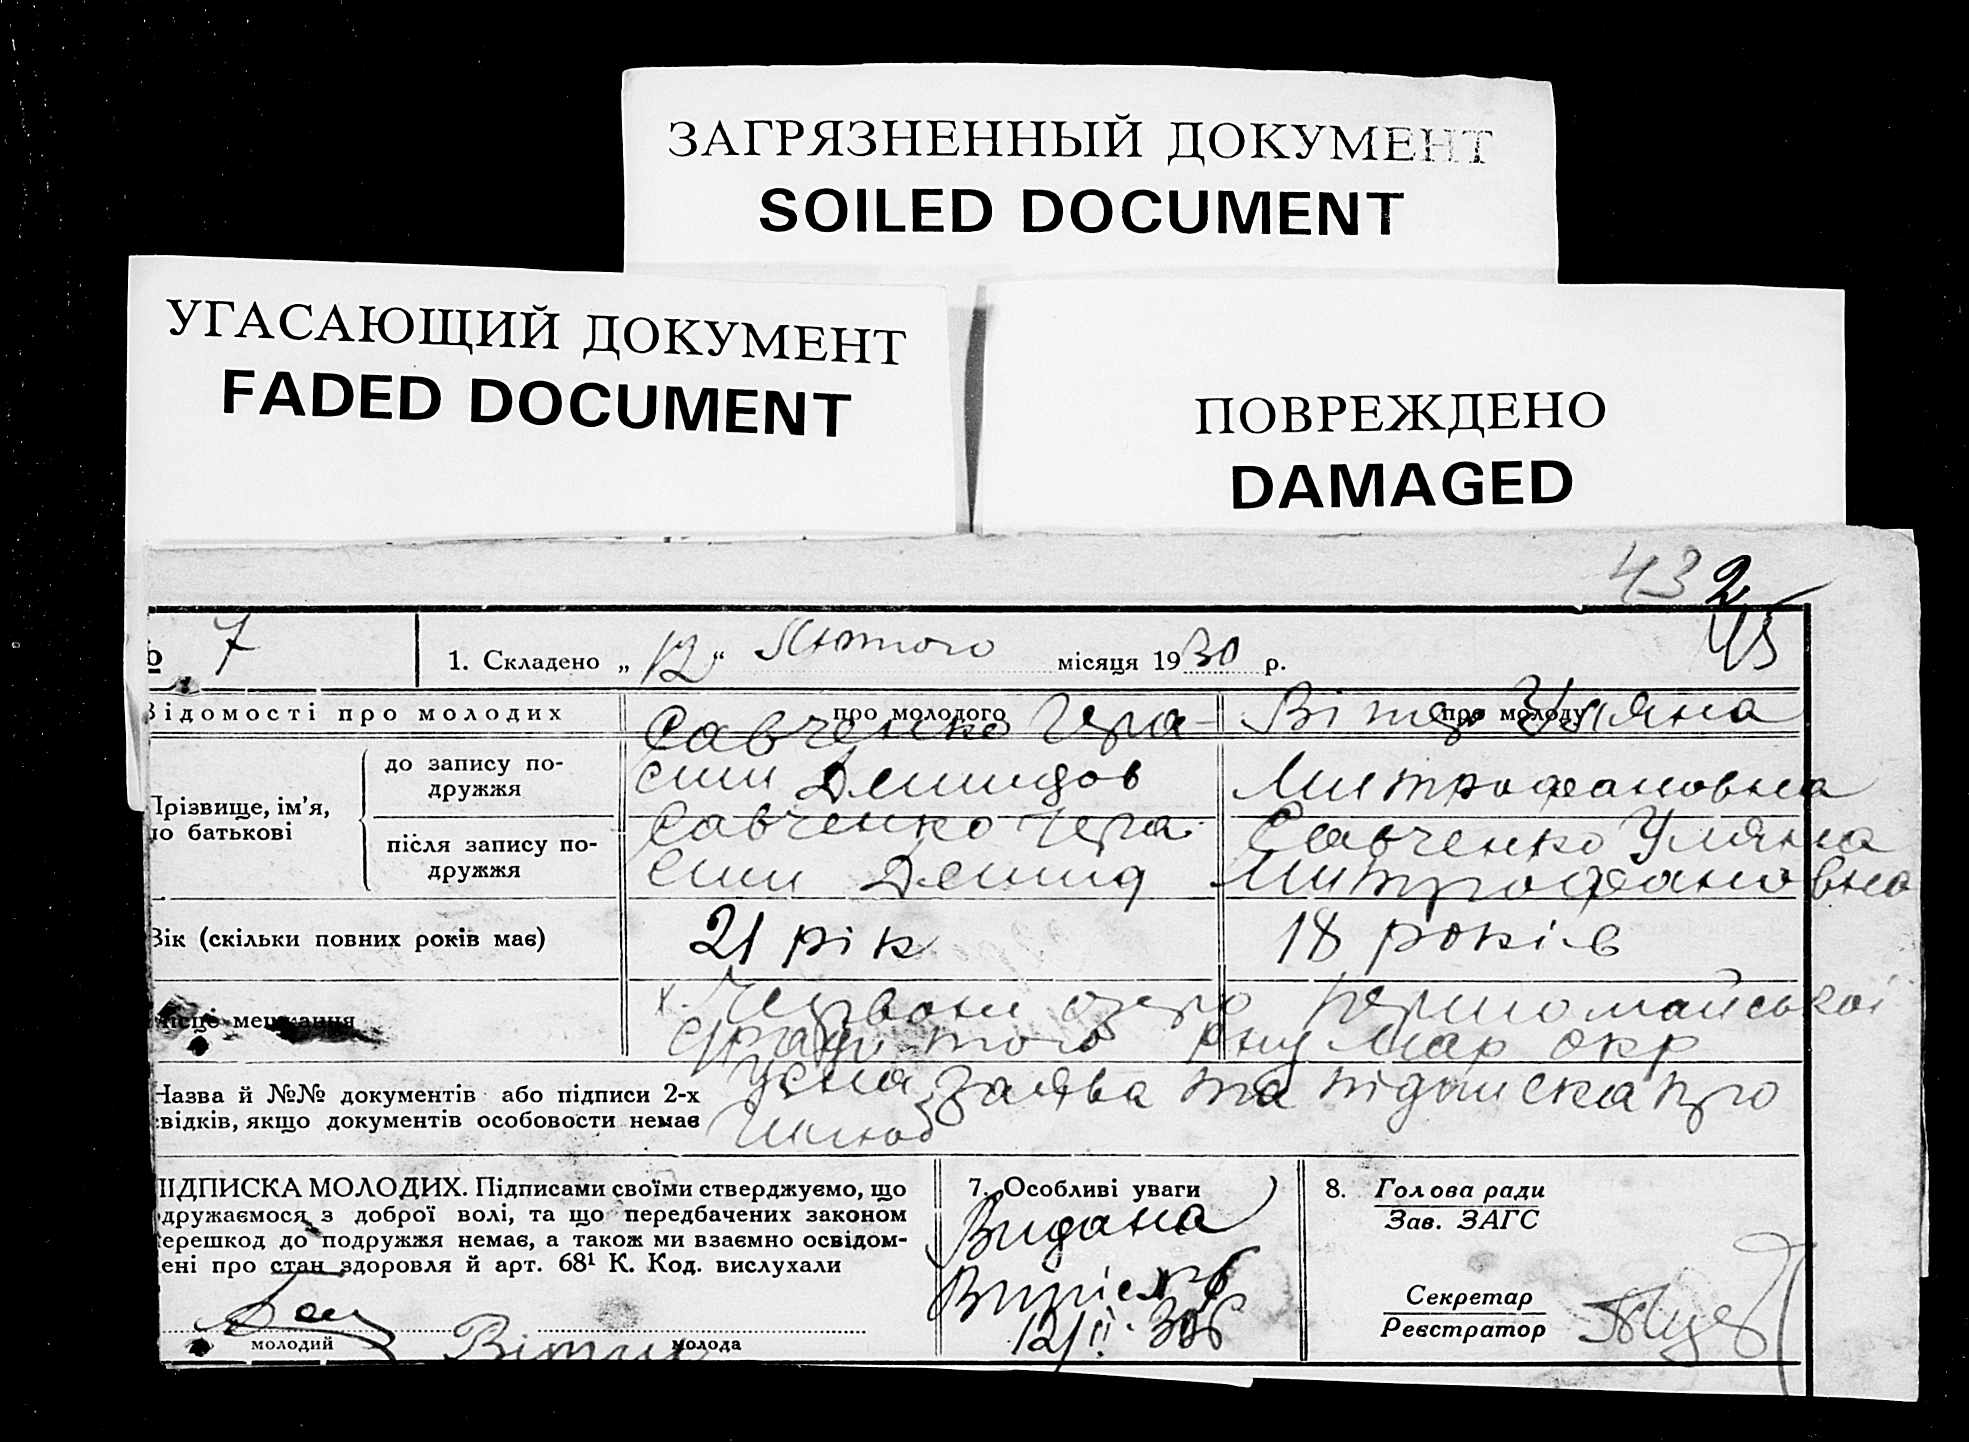 ЗАГРЯЗНЕННЫЙ ДОКУМЕНТ
SOILED DOCUMENT
УГАСАЮЩИЙ ДОКУМЕНТ
FADED DOCUMENT
ПОВРЕЖДЕНО
DAMAGED
43 2
45
7
1. Складено „ 12 “ Лютого місяця 1930 р.
ідомості про молодих
про молодого
про молоду
Савченко Гера-
Уляна
до запису по-
дружжя
сим Демидов
Митрофановна
Прізвище, ім’я,
по батькові
після запису по-
дружжя
Савченко Гера
Савченко Уляна
сим Демид
Митрофановна
Вік (скільки повних років має)
21 рік
18 років
Місце мешкання
х. Червони озеро Першомайської
того Мар окр
Назва й №№ документів або підписи 2-х
свідків, якщо документів особовости немає
Усна заява та підписка про
шлюб
ПІДПИСКА МОЛОДИХ. Підписами своїми стверджуємо, що
одружаємося з доброї волі, та що передбачених законом
перешкод до подружжя немає, а також ми взаємно освідом-
лені про стан здоровля й арт. 68¹ К. Код. вислухали
молодий
молода
7. Особливі уваги
Видана
12/II. 30
8. Голова ради
Зав. ЗАГС
Секретар
Реєстратор